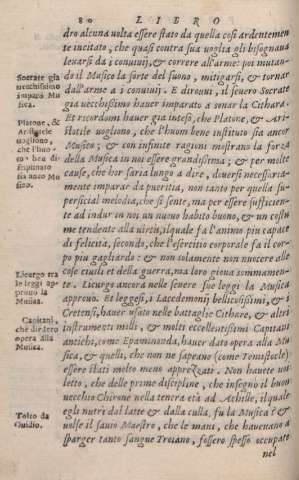 80 LIBRO
dro alcuna uolta essere stato da quella così ardentemen
te incitato, che quasi contra sua uoglia gli bisognaua
leuarsi da i conuiuij, & correre all'arme: poi mutan-
do il Musico la sorte del suono, mitigarsi, & tornar
dall'arme a i conuiuij. E dirouui, il seuero Socrate
già uecchissimo hauer imparato a sonar la Cithara.
Et ricordomi hauer già inteso, che Platone, & Ari-
stotile uogliono, che l'huom bene instituto sia ancor
Musico; & con infinite ragioni mostrano la forza
della Musica in noi essere grandissima; & per molte
cause, che hor saria lungo a dire, douersi necessaria-
mente imparar da pueritia, non tanto per quella su-
perficial melodia, che si sente, ma per essere sufficien-
te ad indur in noi un nuouo habito buono, & un costu
me tendente alla uirtù, ilquale fa l'animo piu capace
di felicità, secondo, che l'esercitio corporale fa il cor-
po piu gagliardo: & non solamente non nuocere alle
cose ciuili et della guerra, ma loro gioua sommamen-
te. Licurgo ancora nelle seuere sue leggi la Musica
approuò. Et leggesi, i Lacedemonij bellicosissimi, & i
Cretensi, hauer usato nelle battaglie Cithare, & altri
instrumenti molli, & molti eccellentissimi Capitani
antichi, come Epaminonda, hauer dato opera alla Mu
sica, & quelli, che non ne sapeano (come Temistocle)
essere stati molto meno apprezzati. Non hauete uoi
letto, che delle prime discipline, che insegnò il buon
uecchio Chirone nella tenera età ad Achille, ilquale
egli nutrì dal latte & dalla culla, fu la Musica? &
uolse il sauio Maestro, che le mani, che haueuano a
sparger tanto sangue Troiano, fossero spesso occupate
nel
Socrate già
uecchissimo
imparò Mu
sica.
Platone, &
Aristotele
uogliono,
che l'huo-
mo ben di-
sciplinato
sia anco Mu
sico.
Licurgo tra
le leggi ap-
prouò la
Musica.
Capitani,
che diedero
opera alla
Musica.
Tolto da
Ouidio.